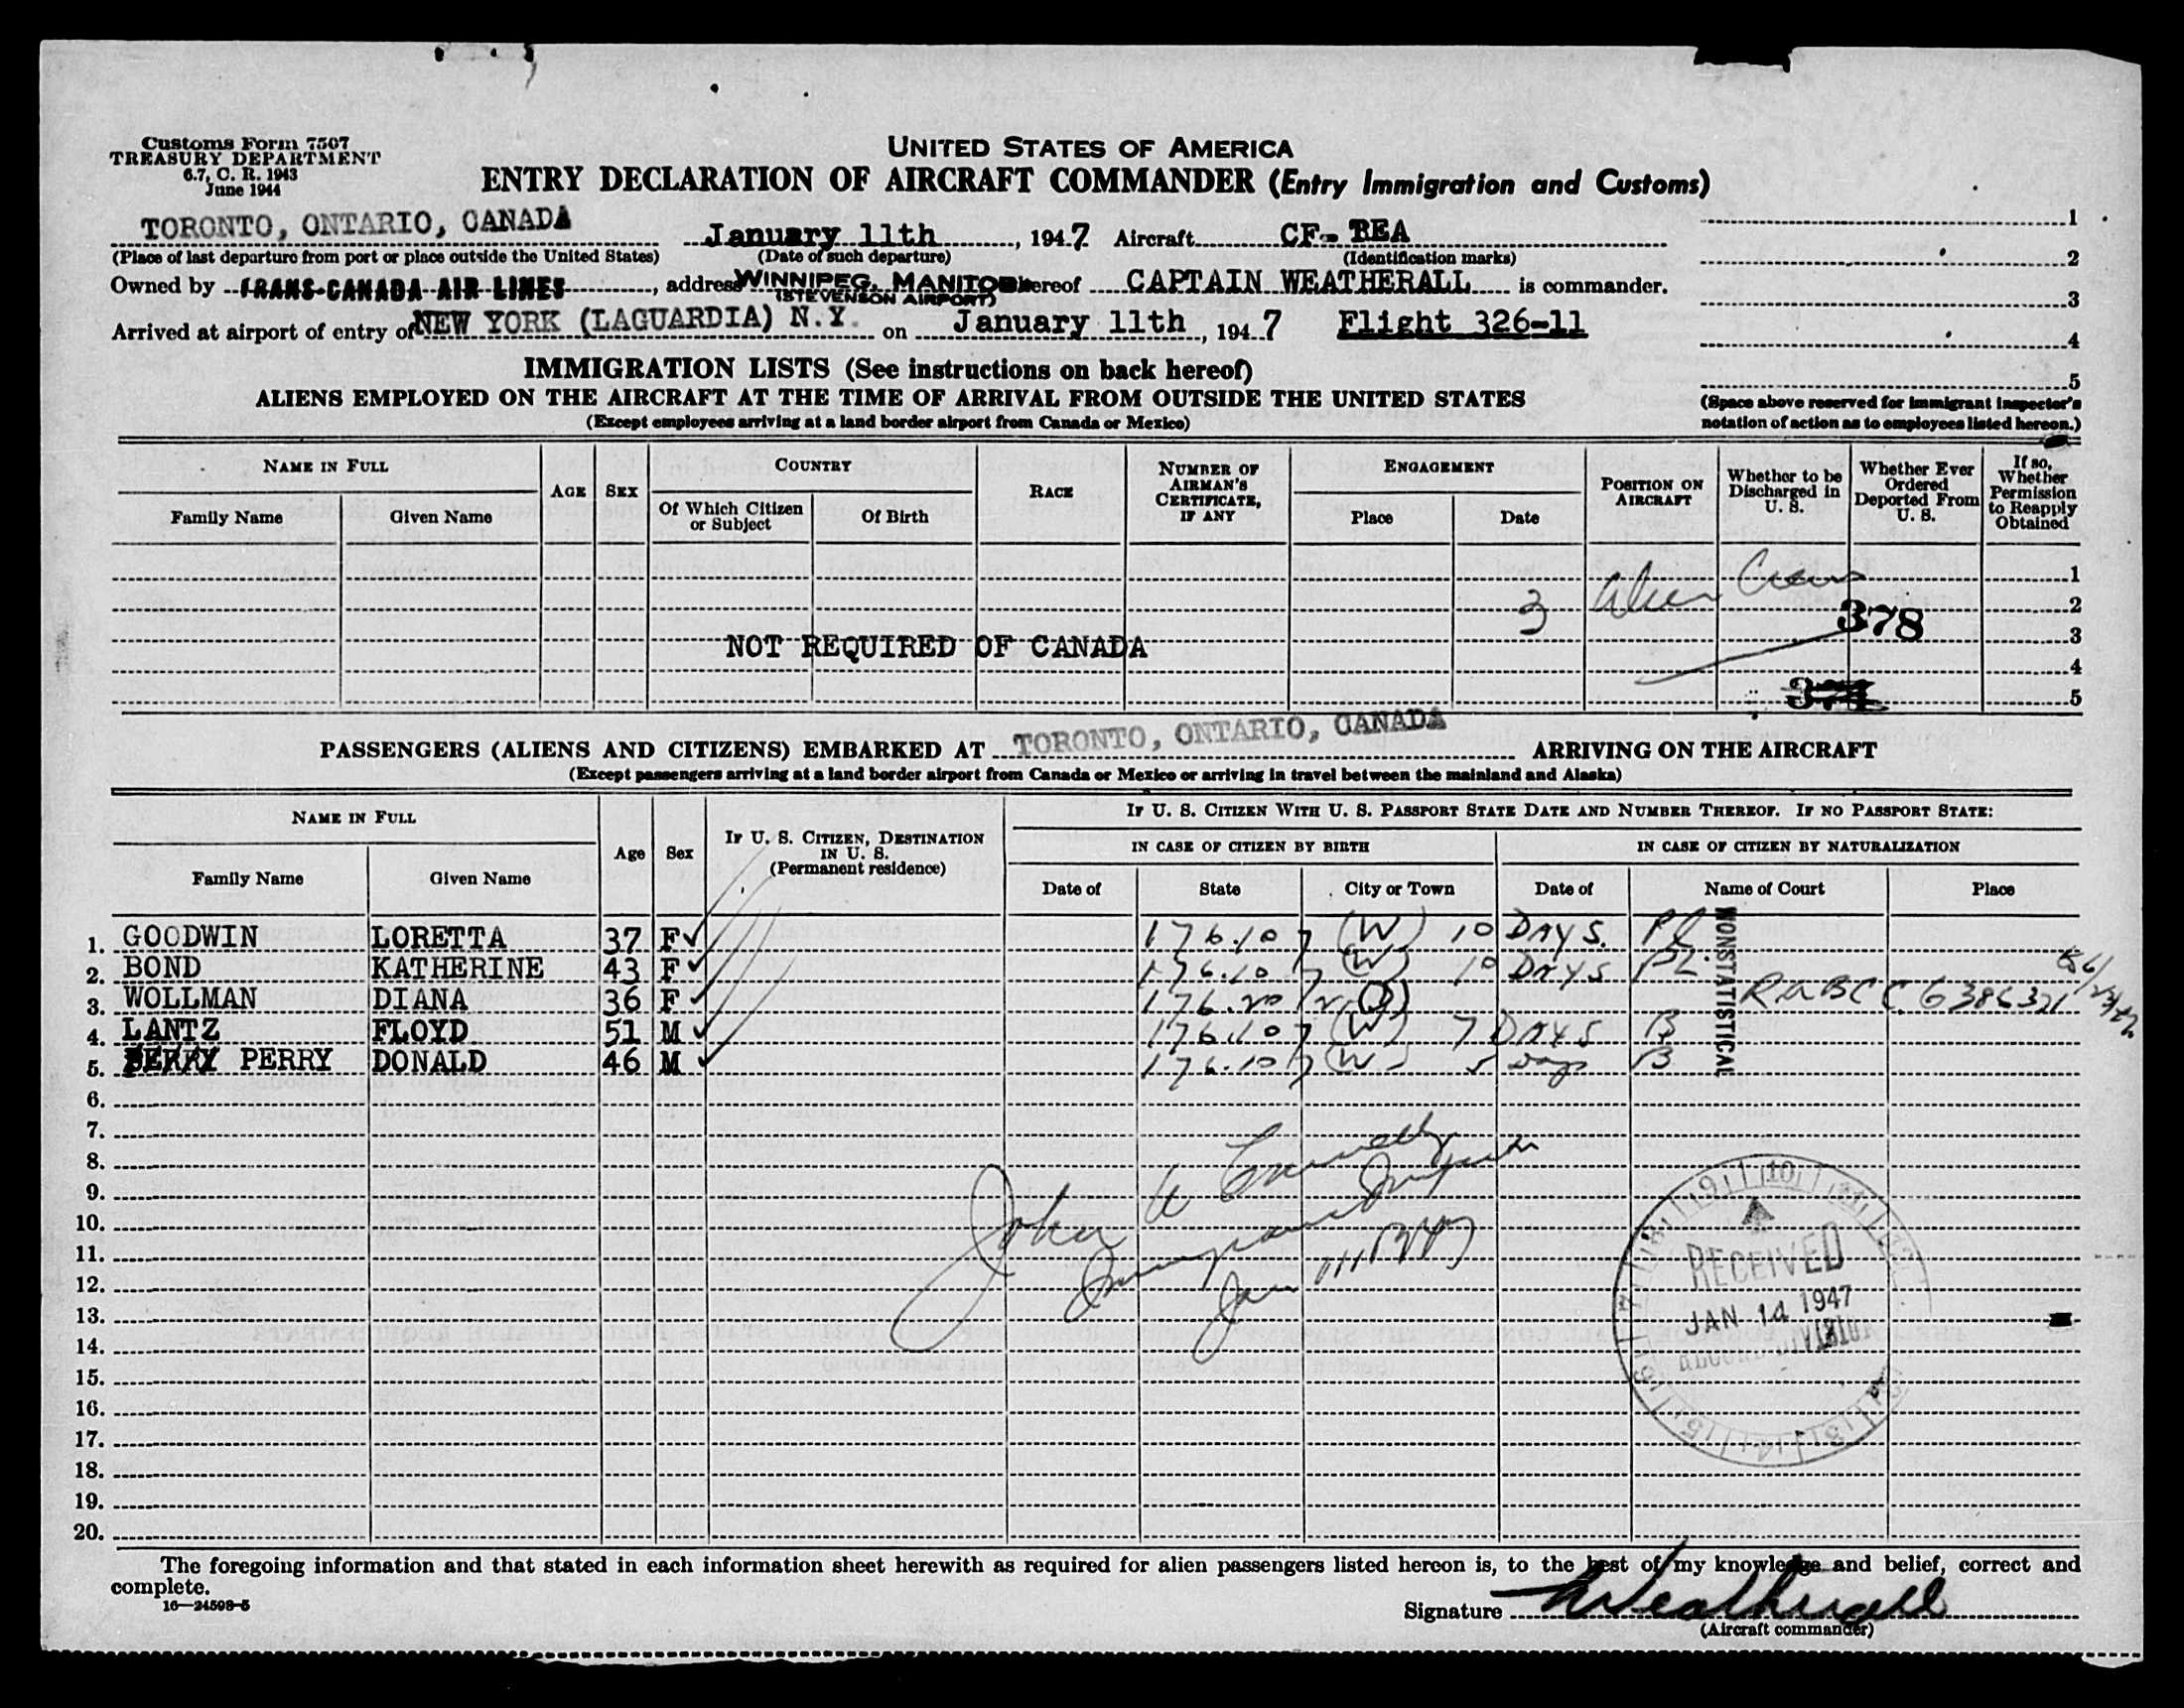 Customs Form 7507
TREASURY DEPARTMENT
6.7, C. R. 1943
June 1944
UNITED STATES OF AMERICA
ENTRY DECLARATION OF AIRCRAFT COMMANDER (Entry Immigration and Customs)
TORONTO, ONTARIO, CANADA January 11th, 1947 Aircraft CF- TEA 1
(Place of last departure from port or place outside the United States) (Date of such departure) (Identification marks) 2
Owned by TRANS-CANADA AIR LINES, address WINNIPEG, MANITOBA hereof CAPTAIN WEATHERALL is commander. 3
(STEVENSON AIRPORT)
Arrived at airport of entry of NEW YORK (LAGUARDIA) N.Y. on January 11th, 1947 Flight 326-11 4
IMMIGRATION LISTS (See instructions on back hereof) 5
ALIENS EMPLOYED ON THE AIRCRAFT AT THE TIME OF ARRIVAL FROM OUTSIDE THE UNITED STATES
(Space above reserved for immigrant inspector's
(Except employees arriving at a land border airport from Canada or Mexico)
notation of action as to employees listed hereon.)
NAME IN FULL AGE SEX COUNTRY RACE NUMBER OF AIRMAN'S CERTIFICATE, IF ANY ENGAGEMENT POSITION ON AIRCRAFT Whether to be Discharged in U. S. Whether Ever Ordered Deported From U. S. If so, Whether Permission to Reapply Obtained
Family Name Given Name Of Which Citizen or Subject Of Birth Place Date
1
3 Alien Crew 2
378 3
NOT REQUIRED OF CANADA
4
374 5
PASSENGERS (ALIENS AND CITIZENS) EMBARKED AT TORONTO, ONTARIO, CANADA ARRIVING ON THE AIRCRAFT
(Except passengers arriving at a land border airport from Canada or Mexico or arriving in travel between the mainland and Alaska)
NAME IN FULL Age Sex IF U. S. CITIZEN, DESTINATION IN U. S. (Permanent residence) IF U. S. CITIZEN WITH U. S. PASSPORT STATE DATE AND NUMBER THEREOF. IF NO PASSPORT STATE:
IN CASE OF CITIZEN BY BIRTH IN CASE OF CITIZEN BY NATURALIZATION
Family Name Given Name Date of State City or Town Date of Name of Court Place
1. GOODWIN LORETTA 37 F 176.10 7 (W) 10 DAYS. PL
2. BOND KATHERINE 43 F 176.10 7 (W) 10 DAYS PL
3. WOLLMAN DIANA 36 F 176.20
4. LANTZ FLOYD 51 M 176.10 7 (W) 7 DAYS B
5. BERRY PERRY DONALD 46 M 176.10 7 (W) 5 Days B
NONSTATISTICAL
6.
7.
8.
9.
10.
11.
12.
13.
14.
15.
16.
17.
18.
19.
20.
John
Immigrant Inspector
Jan
RECEIVED
JAN 14 1947
RECORD DIVISION
The foregoing information and that stated in each information sheet herewith as required for alien passengers listed hereon is, to the best of my knowledge and belief, correct and
complete.
16—24598-5
Signature Weatherall
(Aircraft commander)